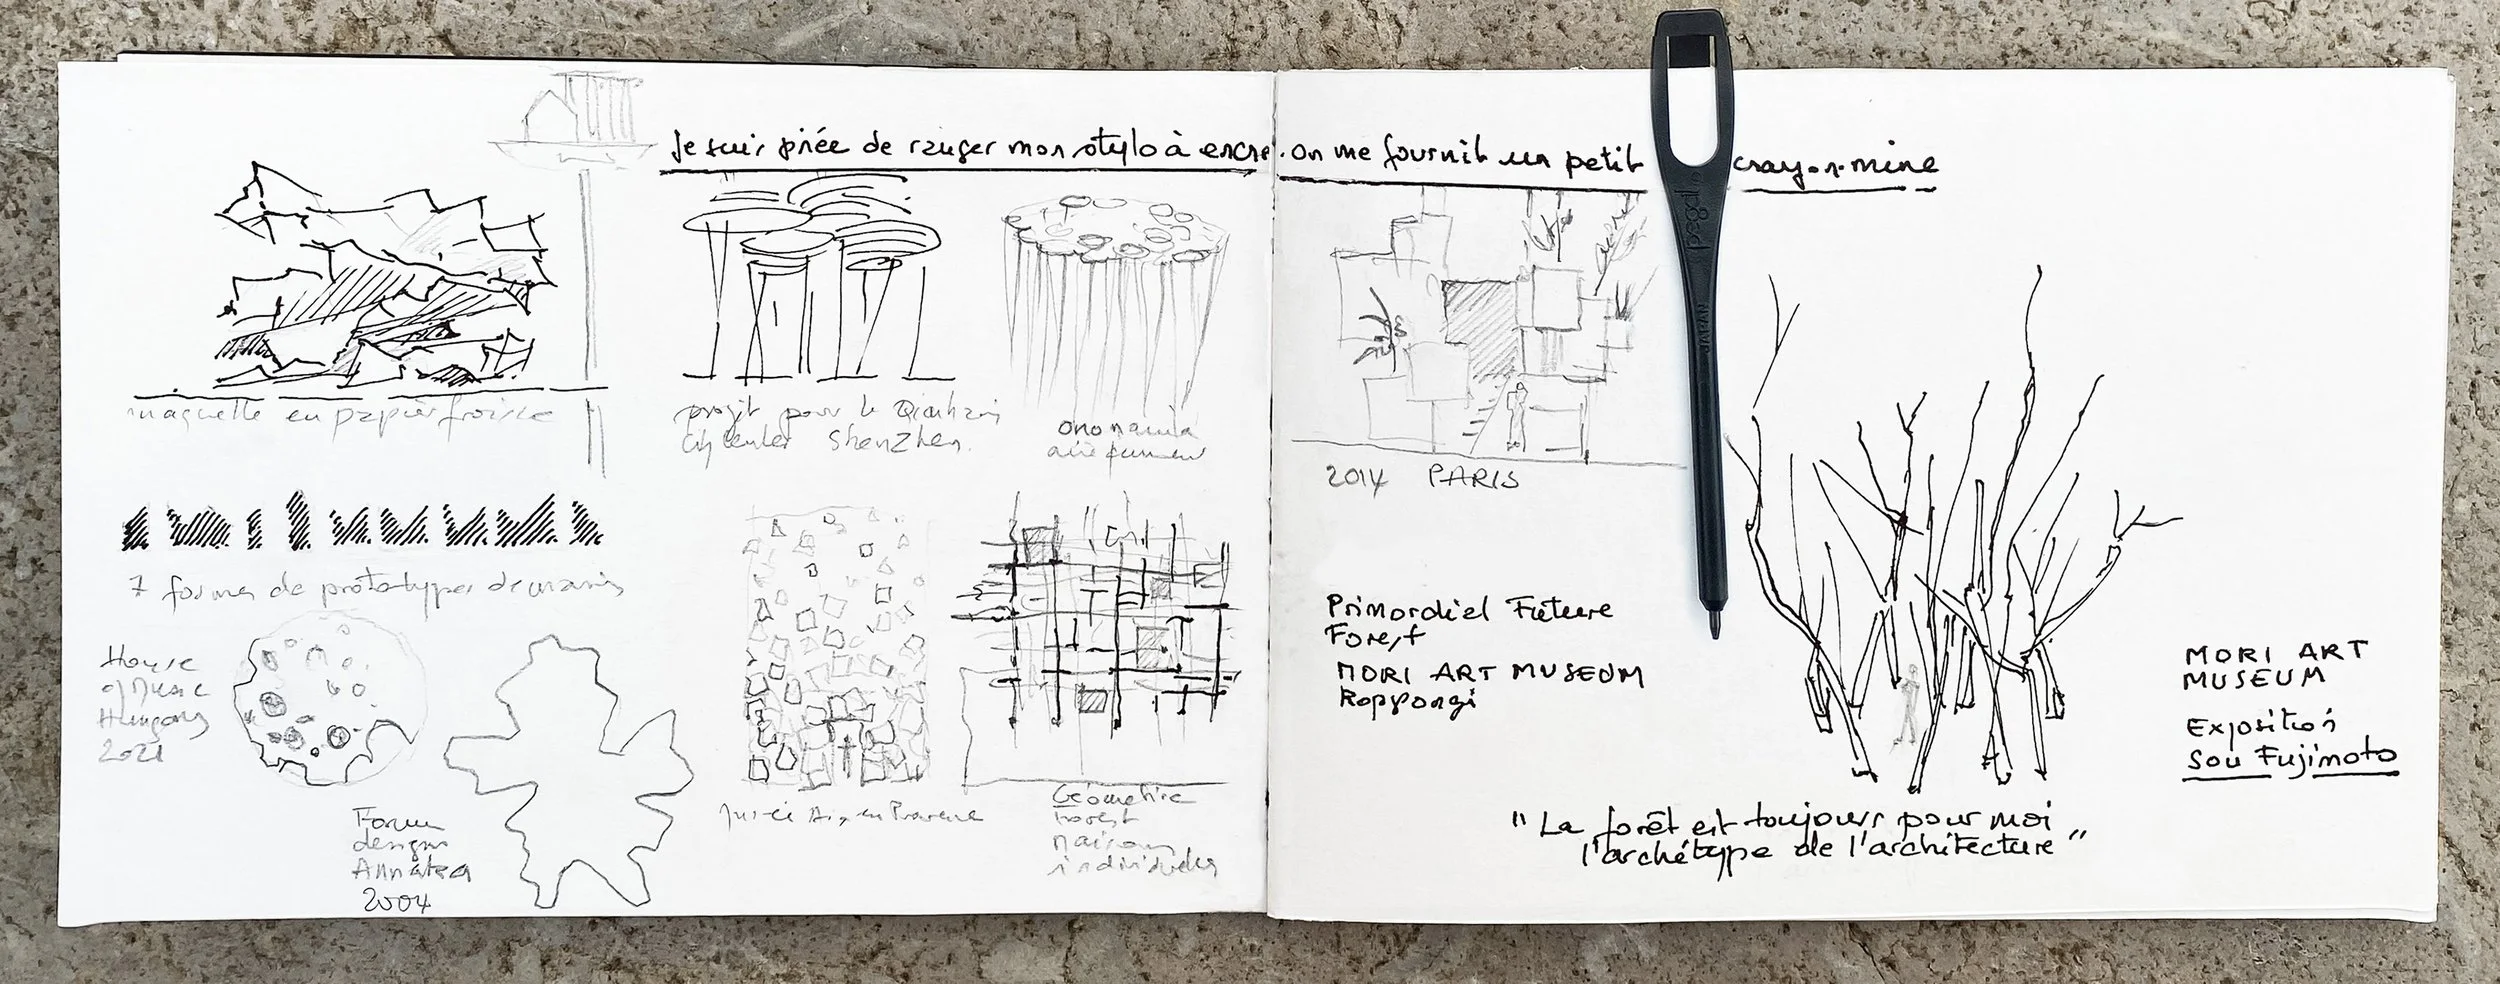 Je suis priée de ranger mon stylo à encre. On me fournit un petit crayon mine
maquette en papier froissé
projet pour le Qianhai
city center ShenZhen.
2014 PARIS
7 formes de prototypes de
House
of Music
Hungary
2021
Forum
design
Annaka
2004
Aix en Provence
Géometric
Forest
maison
individuelle
Primordial Future
Forest
MORI ART MUSEUM
Roppongi
pegol
JAPAN
MORI ART
MUSEUM
Exposition
Sou Fujimoto
"La forêt est toujours pour moi
l'archétype de l'architecture"